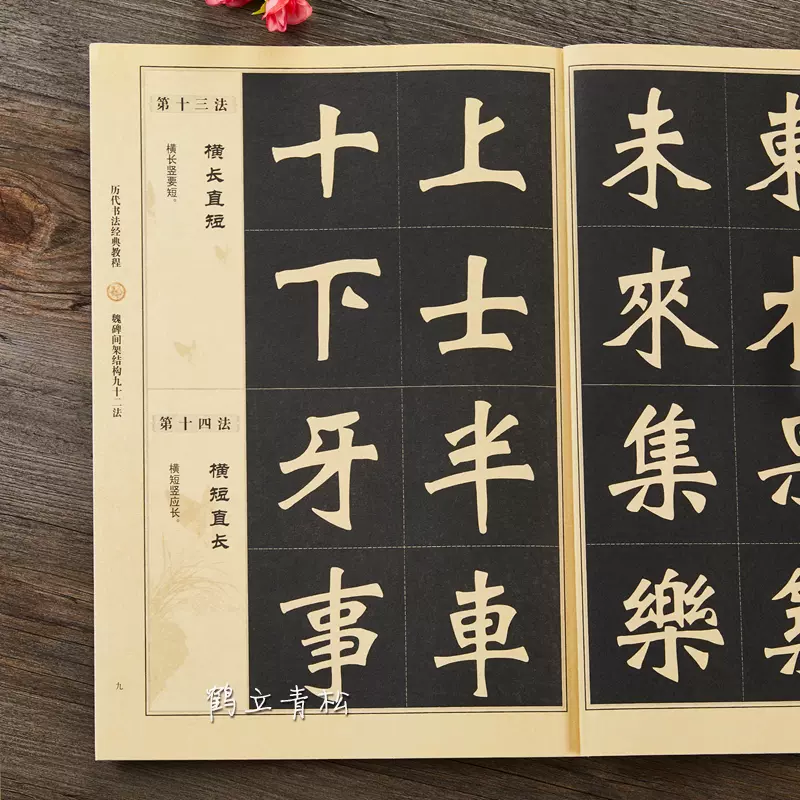 历代书法经典教程
魏碑间架结构九十二法
九
第十三法
横长直短
横长竖要短。
十 上
下 士
第十四法
横短直长
横短竖应长。
牙 半
事 車
未
來
集
樂
鹤立青松